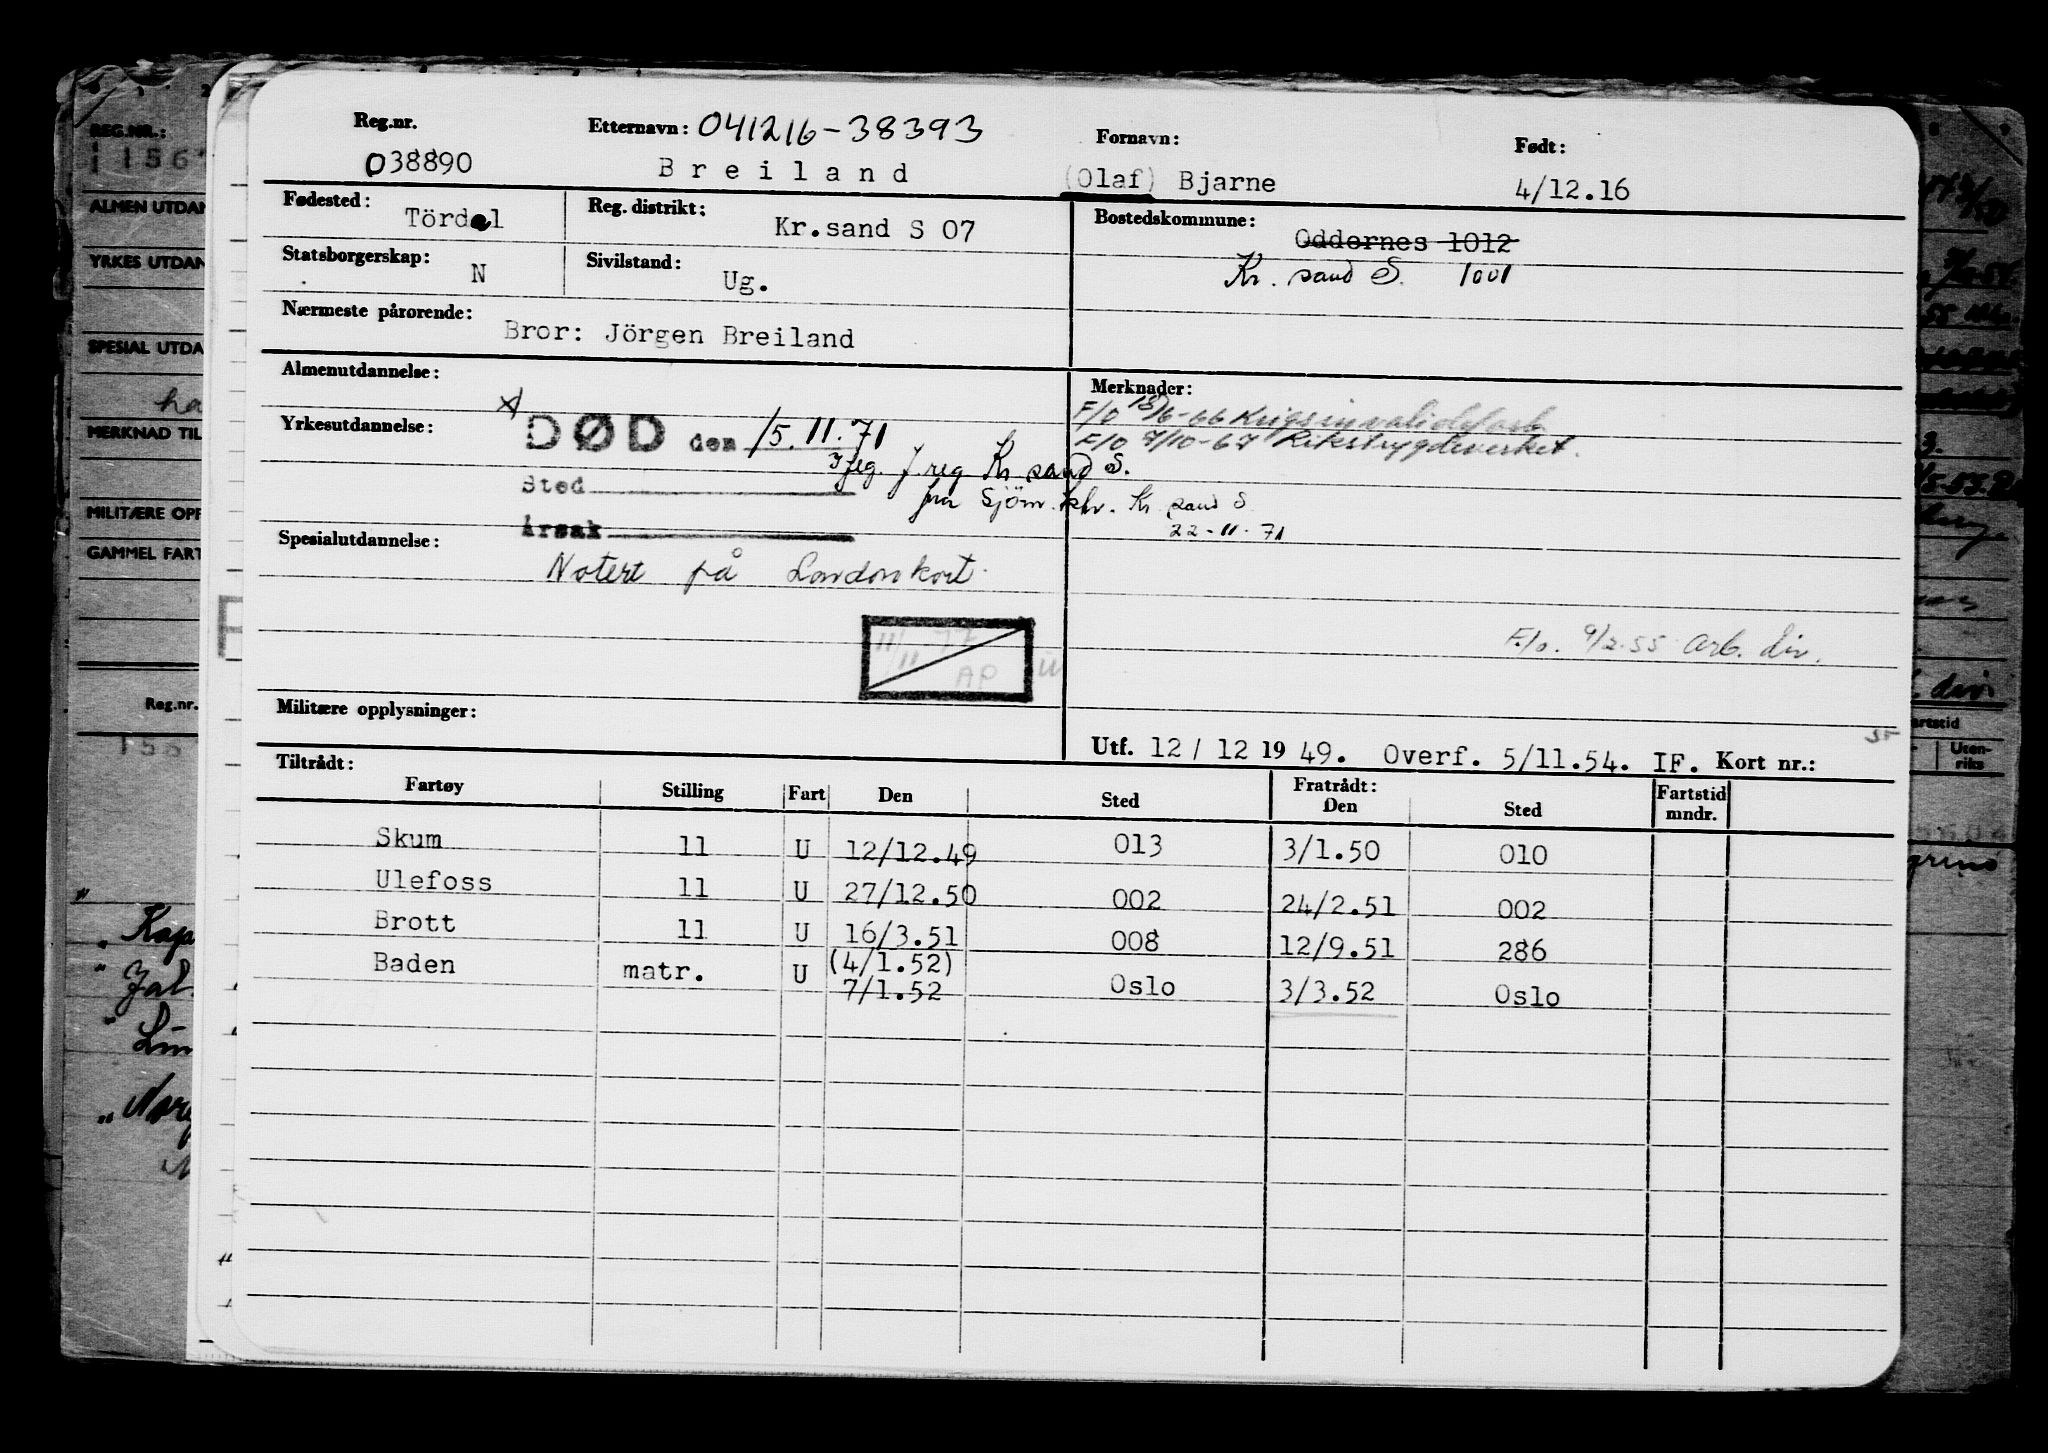 Reg.nr. Etternavn: 041216-38393 Fornavn: Født:
038890 Breiland (Olaf) Bjarne 4/12.16
Fødested: Tördal Reg. distrikt: Kr.sand S 07 Bostedskommune: Oddernes 1012
Statsborgerskap: N Sivilstand: Ug. Kr. sand S. 1001
Nærmeste pårørende: Bror: Jörgen Breiland
Almenutdannelse: Merknader:
F/o 18/6-66 Krigsinvalidefarb
Yrkesutdannelse: DØD den 15.11.71 F/o 9/10-67 Rikstrygdeverket.
flg. J.reg Kr sand S.
Sted fra Sjöm.ktr. Kr sand S
Årsak 22-11-71
Spesialutdannelse:
Notert på Londonkort
11/11 77 F/o. 9/2.55 Arb. div.
AP
Militære opplysninger:
Utf. 12/12 1949. Overf. 5/11.54. IF. Kort nr.:
Tiltrådt: Fratrådt: Fartstid
Fartøy Stilling Fart Den Sted Den Sted mndr.
Skum 11 U 12/12.49 013 3/1.50 010
Ulefoss 11 U 27/12.50 002 24/2.51 002
Brott 11 U 16/3.51 008 12/9.51 286
Baden matr. U (4/1.52)
7/1.52 Oslo 3/3.52 Oslo
REG.NR.:
ALMEN UTDAN
YRKES UTDAN
SPESIAL UTDA
MERKNAD TIL
MILITÆRE OPP
GAMMEL FART
Reg.nr.
artstid
Uten-
riks